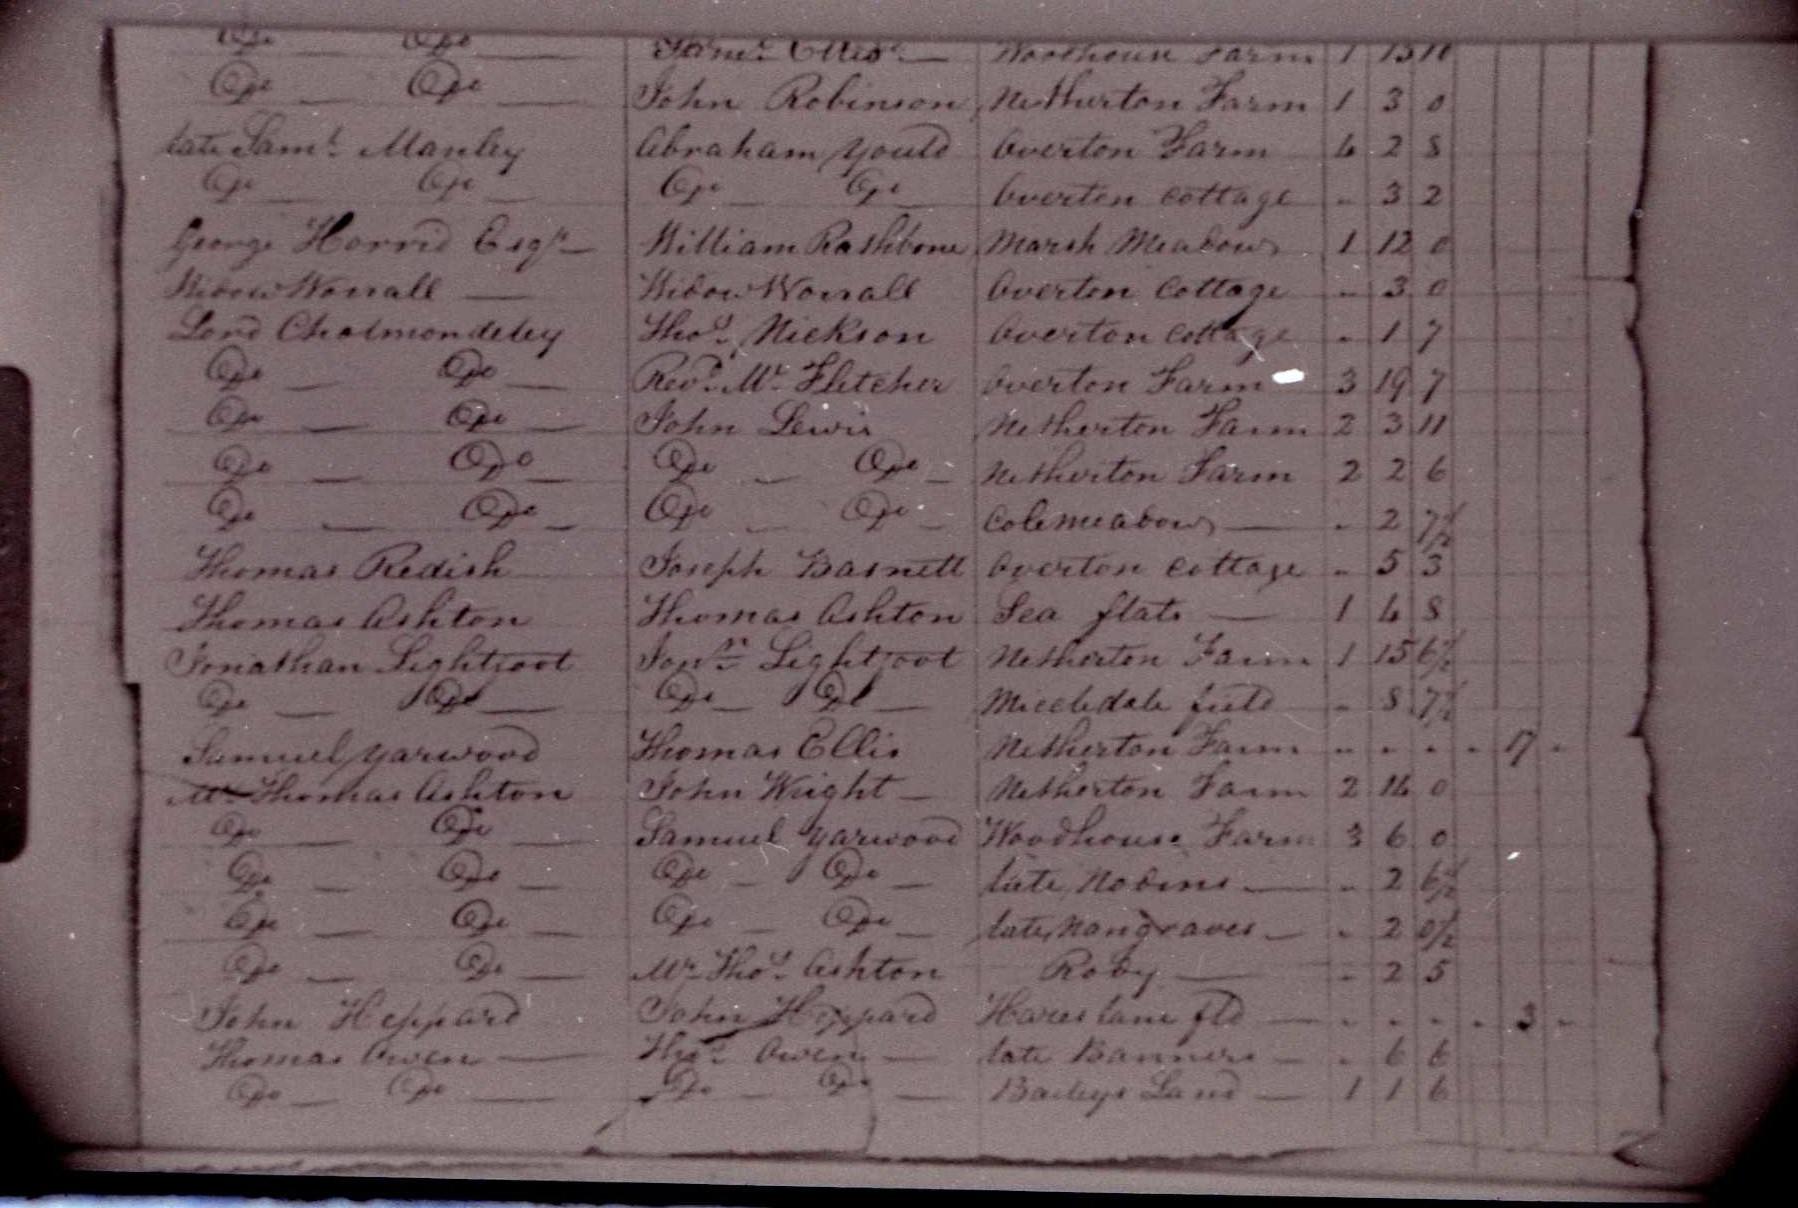 Do Do James Ellis Woodhouse Farm 1 15 10
Do — Do — John Robinson Netherton Farm 1 3 0
late Saml. Manley Abraham Yould Overton Farm 4 2 8
Do — Do — Do Do Overton Cottage - 3 2
George Horrid Esqr — William Rathbone Marsh Meadows 1 12 0
Widow Worrall — Widow Worrall Overton Cottage - 3 0
Lord Cholmondeley Thos. Nickson Overton Cottage - 1 7
Do — Do — Revd. Mr. Fletcher Overton Farm 3 19 7
Do — Do — John Lewis Netherton Farm 2 3 11
Do — Do — Do — Do — Netherton Farm 2 2 6
Do — Do — Do — Do — Colemeadow — - 2 7½
Thomas Redish Joseph Basnett Overton Cottage - 5 3
Thomas Ashton Thomas Ashton Sea flats — 1 4 8
Jonathan Lightfoot Jonn. Lightfoot Netherton Farm 1 15 6½
Do — Do — Do — Do — field - 8 7½
Samuel Yarwood Thomas Ellis Netherton Farm - - - - 17 -
Mr. Thomas Ashton John Wright — Netherton Farm 2 16 0
Do — Do — Samuel Yarwood Woodhouse Farm 3 6 0
Do — Do — Do — Do — late — - 2 6½
Do — Do — Do — Do — late Hangraves — - 2 0½
Do — Do — Mr. Thos. Ashton Roby — - 2 5
John Heppard John Heppard Hares lane fld — - - - - 3 -
Thomas Owen — Thos. Owen — late Banners — - 6 6
Do — Do — Do — Do — Baileys Land — 1 1 6